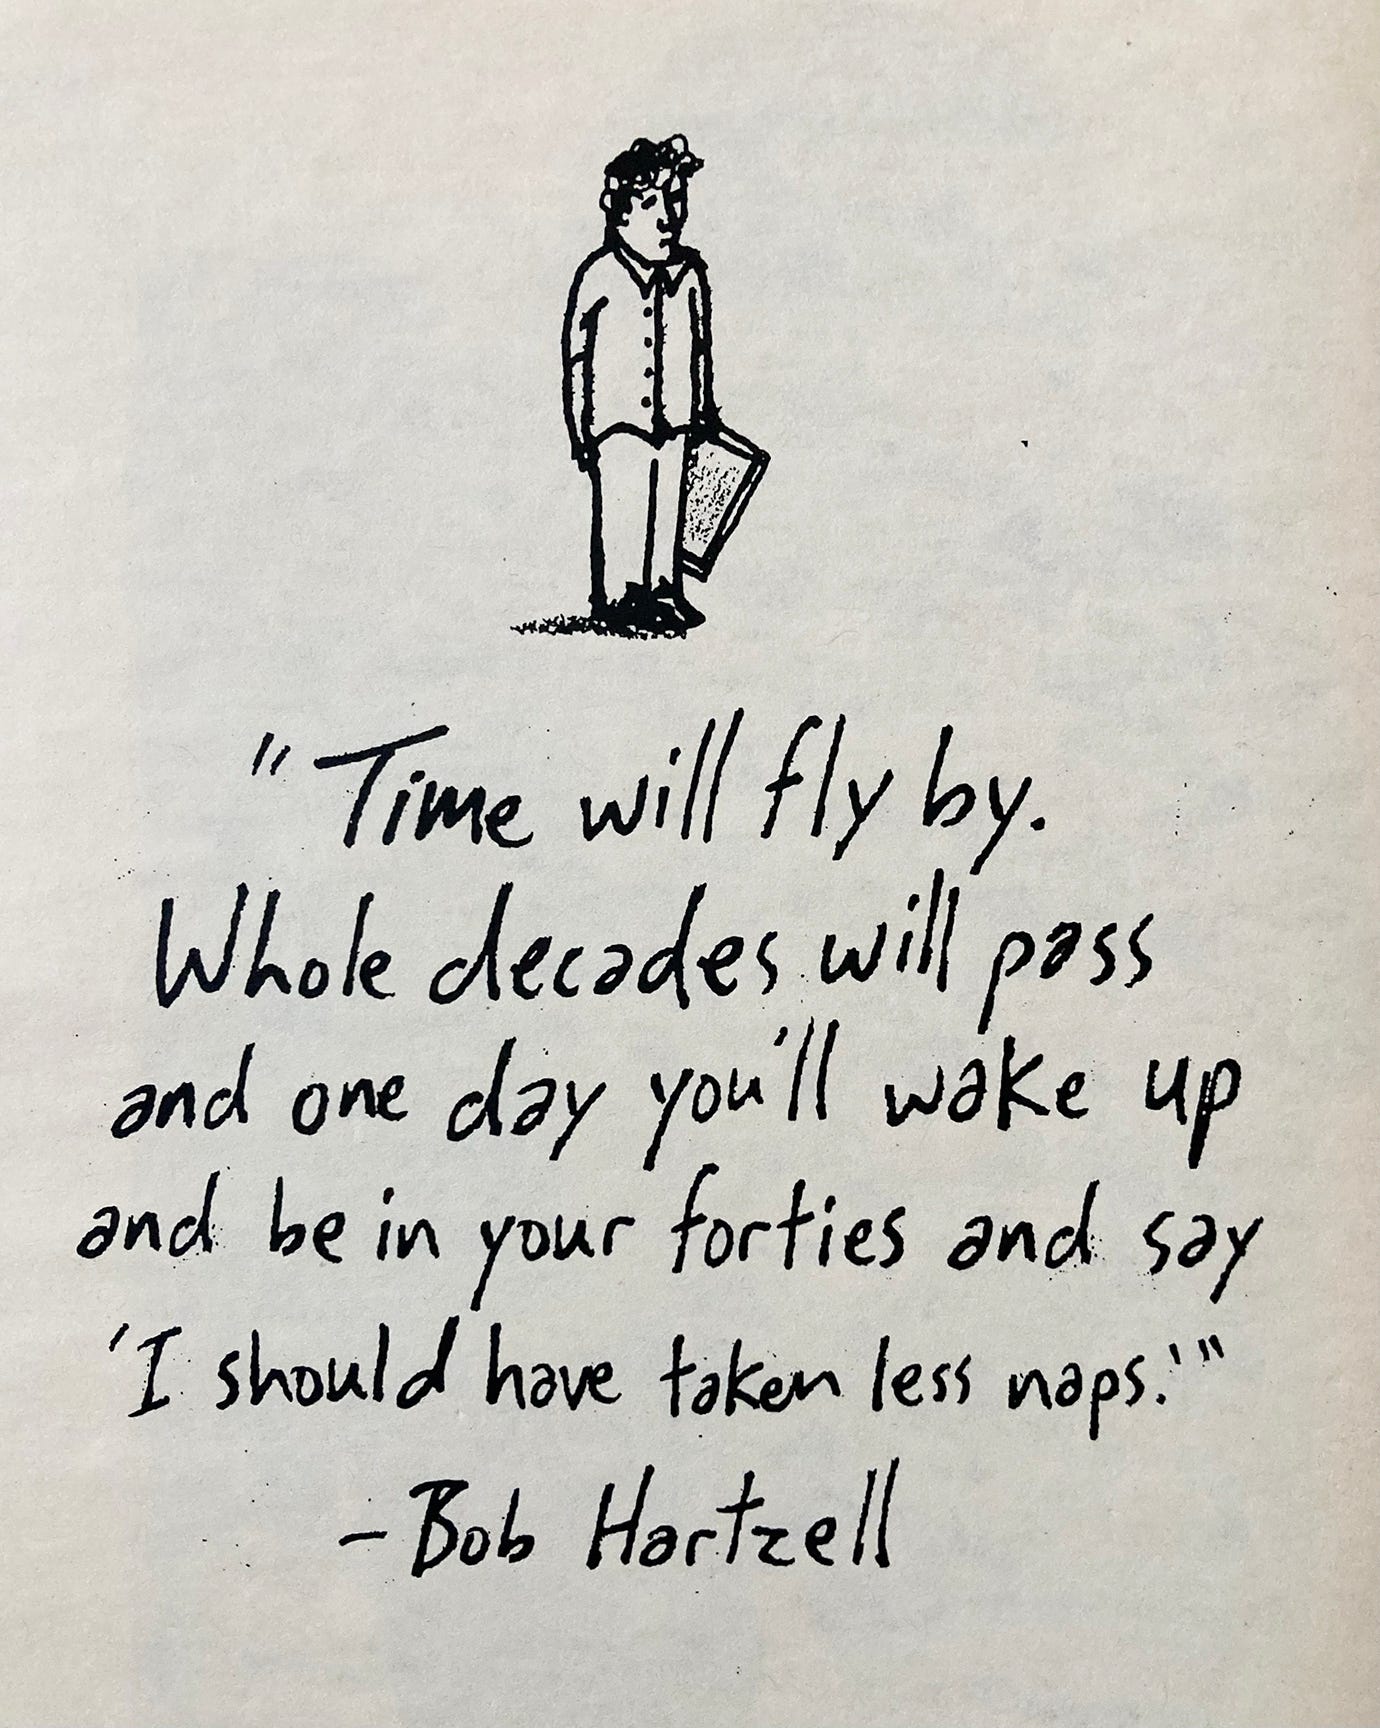 "Time will fly by.
Whole decades will pass
and one day you'll wake up
and be in your forties and say
'I should have taken less naps.'"
-Bob Hartzell